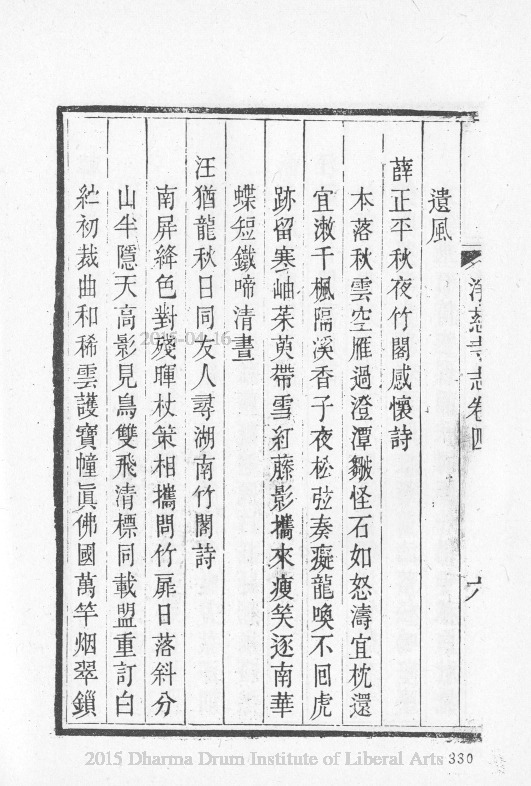 淨慈寺志卷四
六
遺風
薛正平秋夜竹閣感懷詩
本落秋雲空雁過澄潭皺怪石如怒濤宜枕還
宜漱千楓隔溪香子夜松弦奏癡龍喚不回虎
跡留寒岫茱萸帶雪紅藤影攜來瘦笑逐南華
蝶短鐵啼清晝
汪猶龍秋日同友人尋湖南竹閣詩
南屏絳色對殘暉杖策相攜問竹扉日落斜分
山半隱天高影見鳥雙飛清標同載盟重訂白
紵初裁曲和稀雲護寶幢真佛國萬竿烟翠鎖
2015-04-16
2015 Dharma Drum Institute of Liberal Arts
330